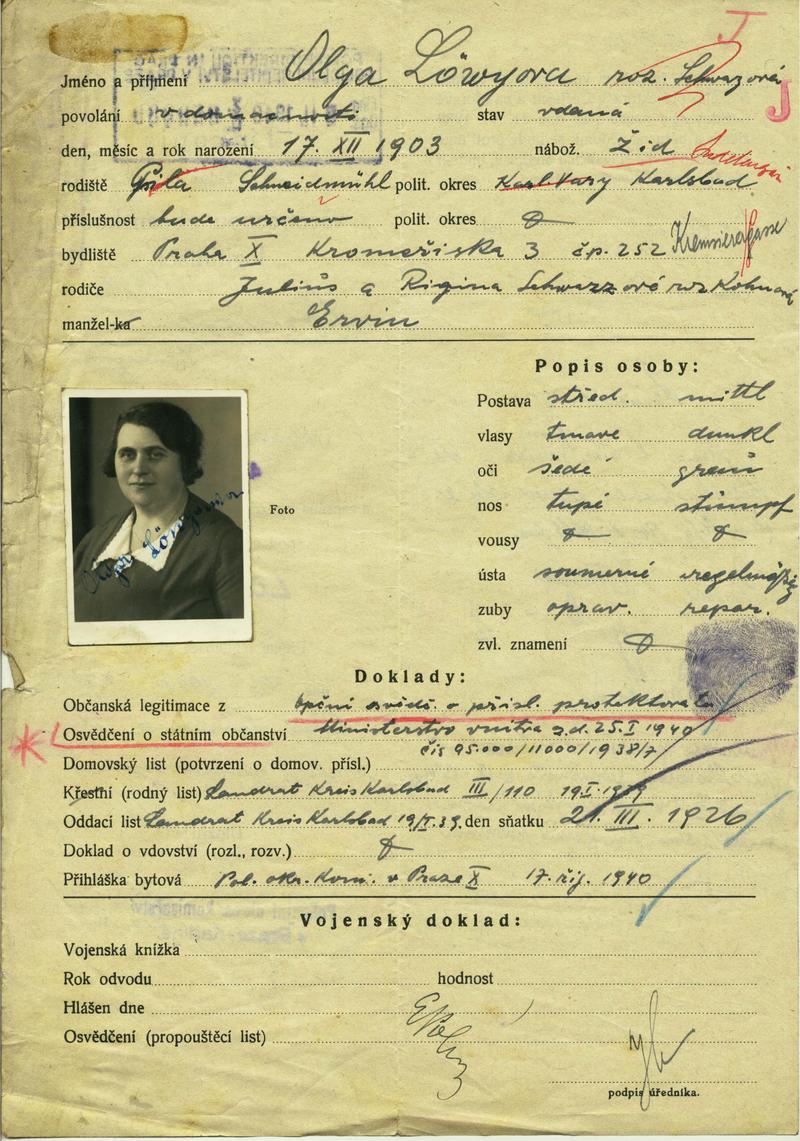 J
Jméno a příjmení Olga Löwyova roz. Schwazová
J
povolání v domácnosti stav vdaná
den, měsíc a rok narození 17. XII 1903 nábož. Žid
rodiště Schneidmühl polit. okres Karlovary Karlsbad
příslušnost bude určeno polit. okres
bydliště Praha X Kromeřižska 3 čp. 252 Kremsierergasse
rodiče Julius a Rigina Schwarzová roz Kohnová
manžel-ka Ervin
Popis osoby:
Postava střed. mittl
vlasy tmavé dunkl
oči šedé grau
nos tupé stumpf
Foto
Olga Löwyova
vousy
ústa soumerné regelmäßig
zuby oprav. repar.
zvl. znamení
Doklady:
Občanská legitimace z o přísl. protektorátu
Osvědčení o státním občanství Ministerstvo vnitra z.d. 25.I 1940
čís 95.000/11000/1938/7
Domovský list (potvrzení o domov. přísl.)
Křestní (rodný list) Landrat Kreis Karlsbad III/110 19.I.1939
Oddací list Landrat Kreis Karlsbad den sňatku 21. III. 1926
Doklad o vdovství (rozl., rozv.)
Přihláška bytová Pol. okr. Kom. v Praze X 17. říj. 1940
Vojenský doklad:
Vojenská knížka
Rok odvodu hodnost
Hlášen dne
Osvědčení (propouštěcí list)
podpis úředníka.